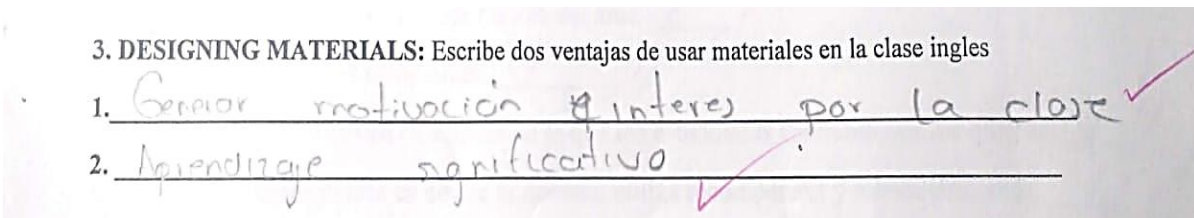 3. DESIGNING MATERIALS: Escribe dos ventajas de usar materiales en la clase ingles
1. Generar motivación e interes por la clase
2. Aprendizaje significativo